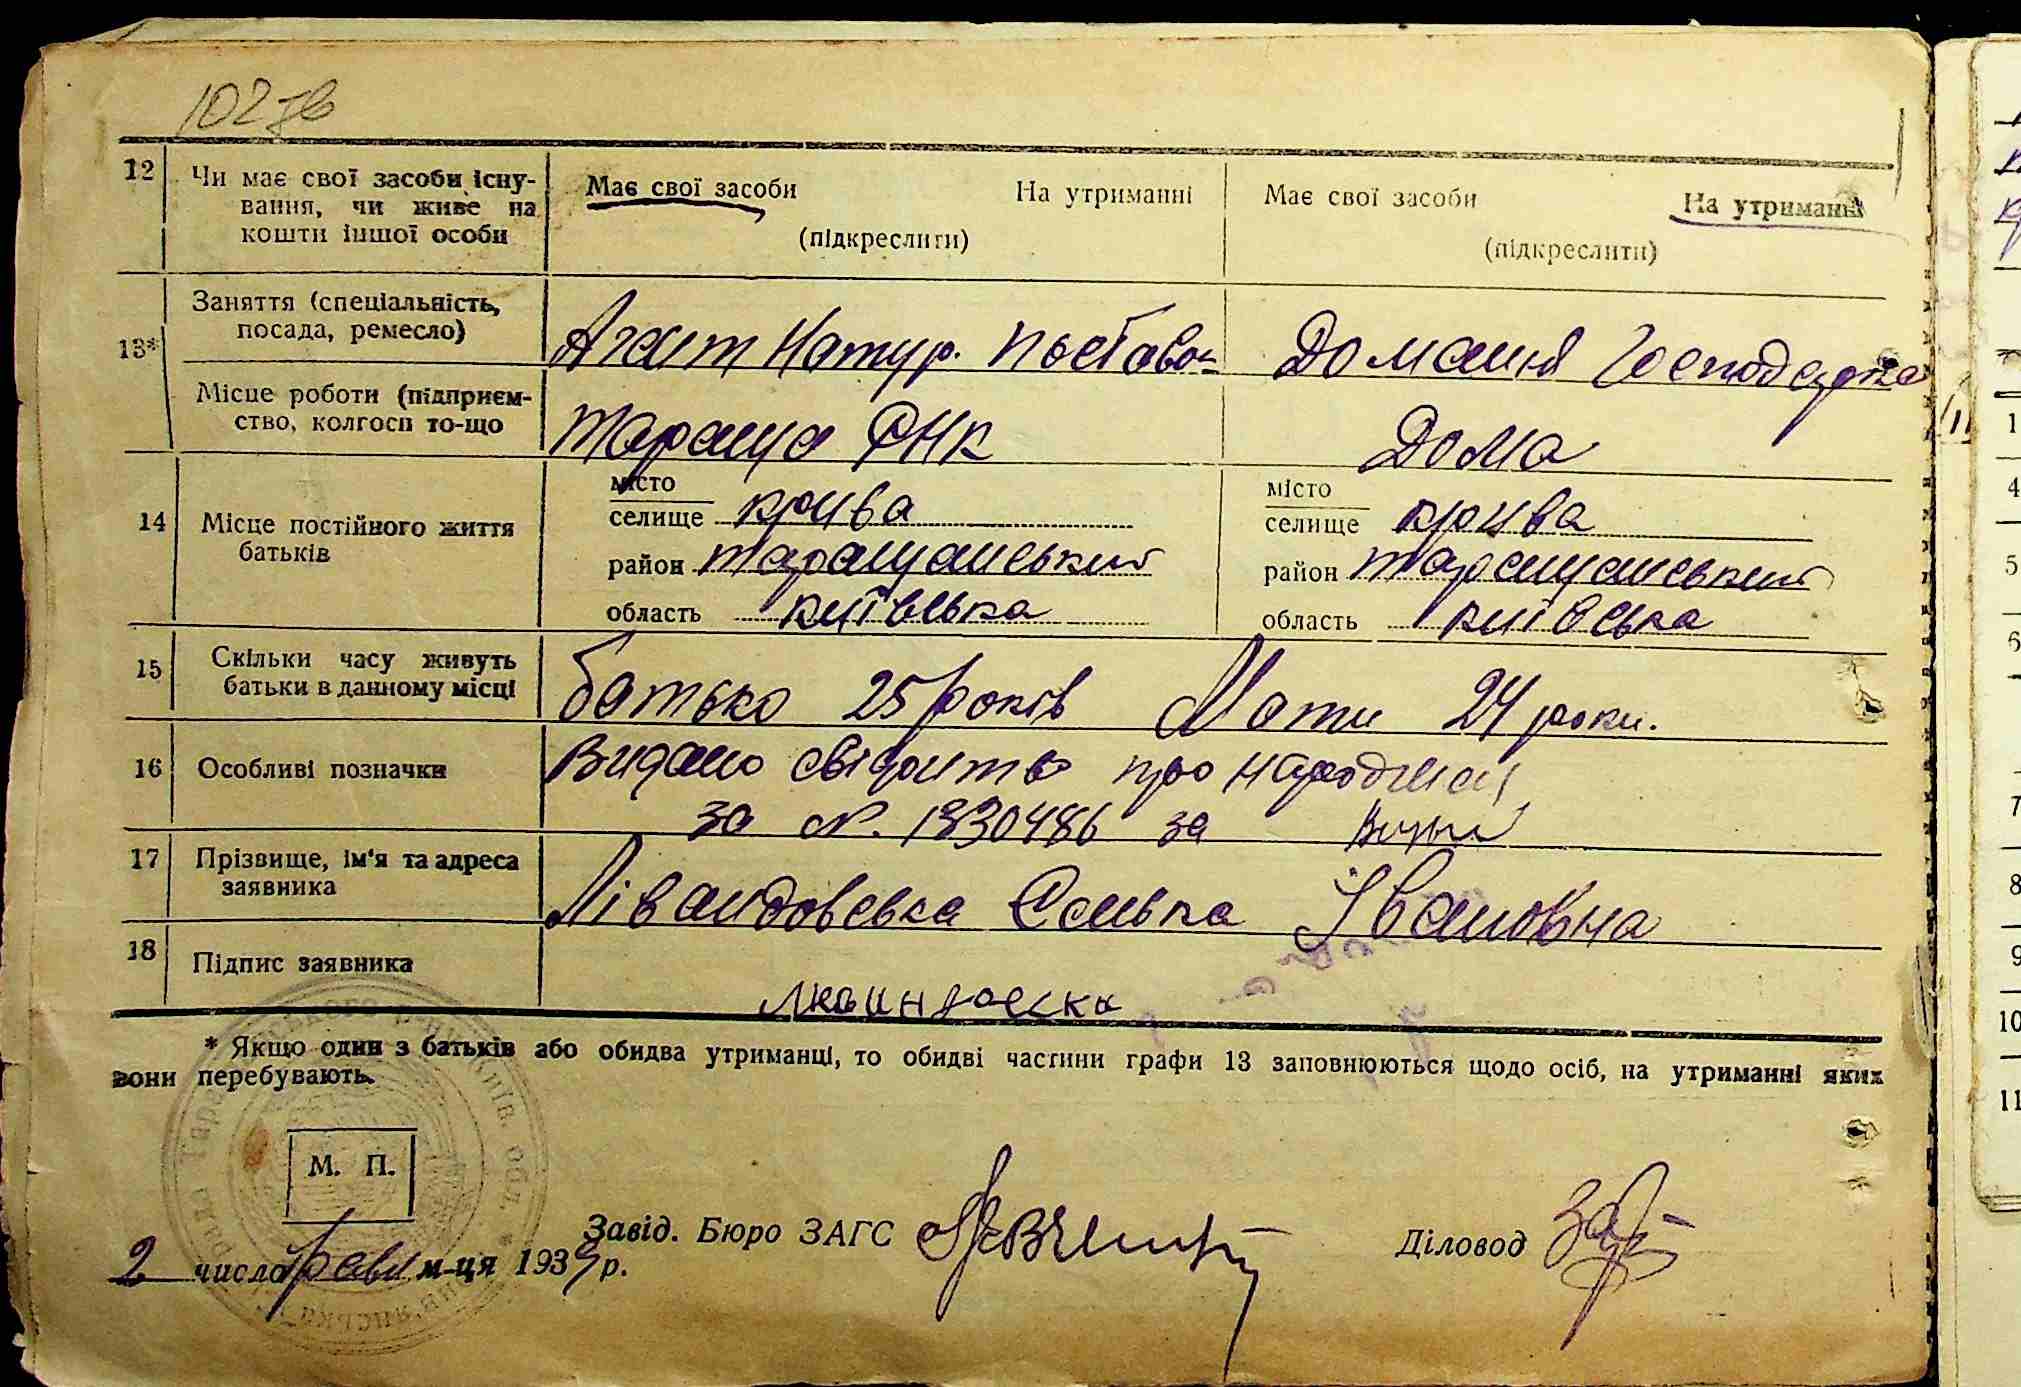 12 Чи має свої засоби існу- Має свої засоби На утриманні Має свої засоби На утриманні
вання, чи живе на (підкреслити) (підкреслити)
кошти іншої особи
13* Заняття (спеціальність,
посада, ремесло) Агент Натур. поставок Домашня Господарка
Місце роботи (підприєм-
ство, колгосп то-що Тараща РНК Дома
14 Місце постійного життя
батьків
місто
селище крива
район таращанський
область київська
місто
селище крива
район таращанський
область київська
15 Скільки часу живуть
батьки в данному місці батько 25 років Мати 24 роки.
16 Особливі позначки Видано свідоитво про народження
за N. 1830486 за
17 Прізвище, ім'я та адреса
заявника Лівандовська Ганька Івановна
18 Підпис заявника
* Якщо один з батьків або обидва утриманці, то обидві частини графи 13 заповнюються щодо осіб, на утриманні яких
вони перебувають.
М. П.
Завід. Бюро ЗАГС Діловод
2 число трав м-ця 1939 р.
1
4
5
6
7
8
9
10
11